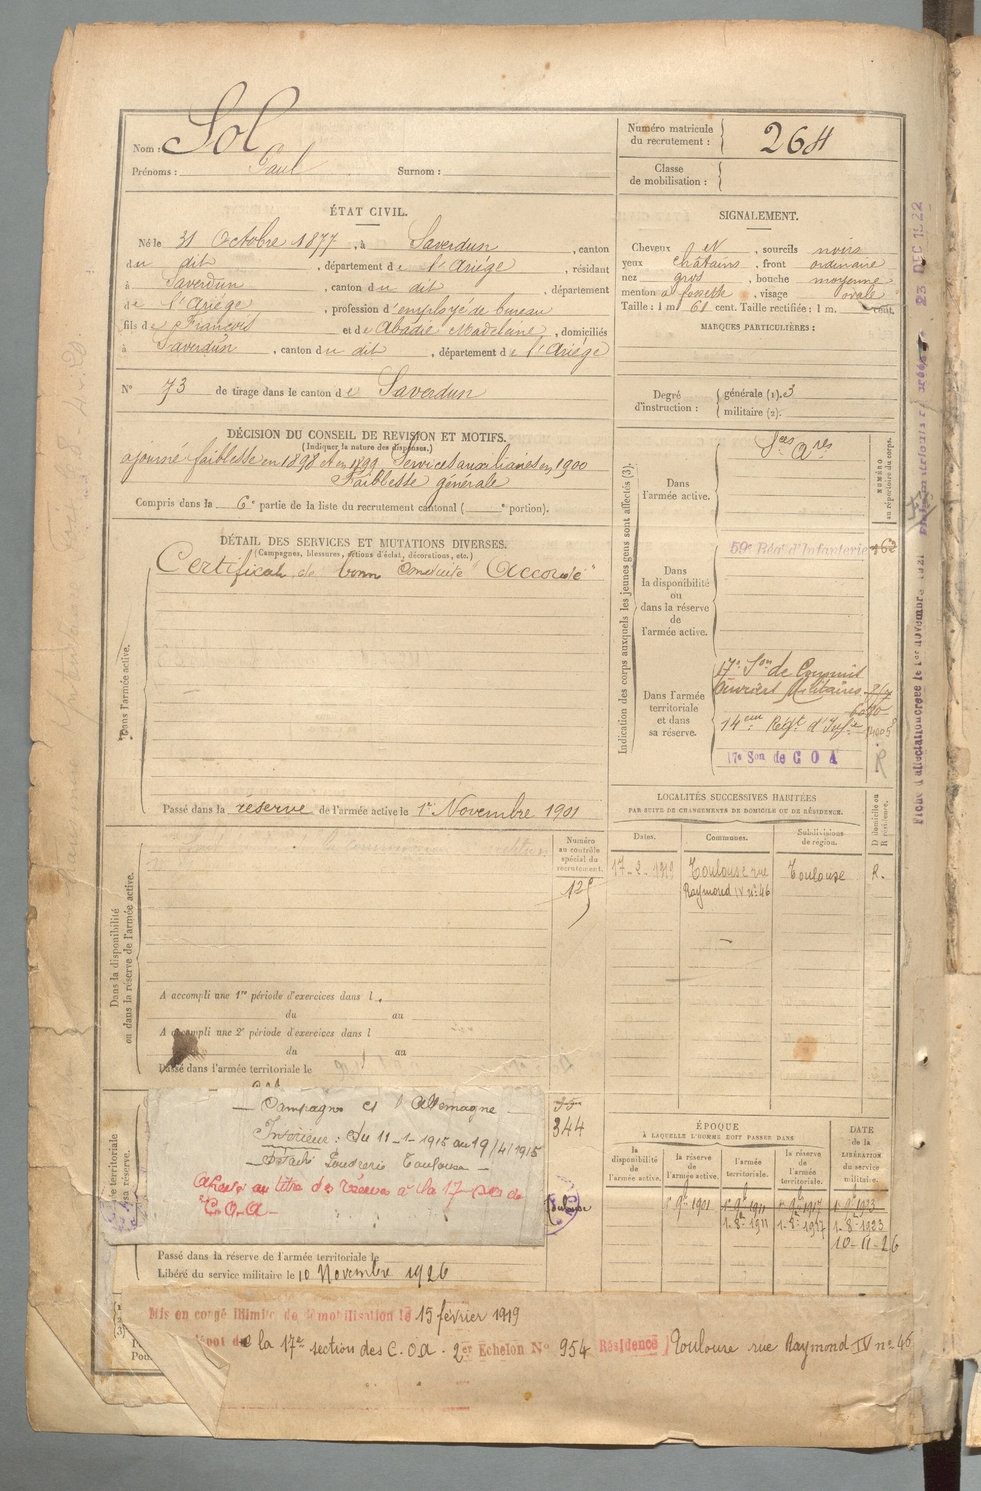 Nom : Sol
Prénoms : Paul Surnom :
Numéro matricule du recrutement : 264
Classe de mobilisation :
ÉTAT CIVIL.
Né le 31 Octobre 1877, à Saverdun, canton
du dit, département de l'Ariége, résidant
à Saverdun, canton du dit, département
de l'Ariége, profession d'employé de bureau
fils de François et de Abadie Madelaine, domiciliés
à Saverdun, canton du dit, département de l'Ariége
N° 73 de tirage dans le canton de Saverdun
SIGNALEMENT.
Cheveux et sourcils noirs
yeux châtains, front ordinaire
nez gros, bouche moyenne
menton à fossette, visage ovale
Taille : 1 m. 61 cent. Taille rectifiée : 1 m. cent.
MARQUES PARTICULIÈRES :
Degré d'instruction : générale (1). 3
militaire (2).
DÉCISION DU CONSEIL DE REVISION ET MOTIFS.
(Indiquer la nature des dispenses.)
ajourné faiblesse en 1898 et en 1899. Services auxiliaires en 1900
Faiblesse générale
Compris dans la 6e partie de la liste du recrutement cantonal ( e portion).
DÉTAIL DES SERVICES ET MUTATIONS DIVERSES.
(Campagnes, blessures, actions d'éclat, décorations, etc.)
Certificat de bonne conduite "Accordé"
Dans l'armée active.
Passé dans la réserve de l'armée active le 1er Novembre 1901
Indication des corps auxquels les jeunes gens sont affectés (3).
NUMÉRO au répertoire du corps.
Dans l'armée active.
Ses Ares
Dans la disponibilité ou dans la réserve de l'armée active.
59e Régt d'Infanterie
Dans l'armée territoriale et dans sa réserve.
17e Son de Commis
Ouvriers Militaires
14eme Régt d'Infie
17e Son de COA
R
Dans la disponibilité ou dans la réserve de l'armée active.
Numéro au contrôle spécial du recrutement.
A accompli une 1re période d'exercices dans l
du au
A accompli une 2e période d'exercices dans l
du au
Passé dans l'armée territoriale le
LOCALITÉS SUCCESSIVES HABITÉES
PAR SUITE DE CHANGEMENTS DE DOMICILE OU DE RÉSIDENCE.
D domicile ou R résidence.
Dates. Communes. Subdivisions de région.
17-2-1919 Toulouse rue Raymond IV n° 46 Toulouse R.
344
Campagne ct l'Allemagne
Intérieur : du 11-1-1915 au 19/4/1915
Détaché Poudrerie Toulouse
Affecté au titre de réserve à la 17e Son de
C.O.A
territoriale
sa réserve.
Toulouse
ÉPOQUE
À LAQUELLE L'HOMME DOIT PASSER DANS
la disponibilité de l'armée active.
la réserve de l'armée active.
l'armée territoriale.
la réserve de l'armée territoriale.
DATE de la LIBÉRATION du service militaire.
1er 9bre 1901 1er 9bre 1911 1er 9bre 1917 1er 9bre 1923
1-8-1911 1-8-1917 1-8-1923
10-11-26
Passé dans la réserve de l'armée territoriale le
Libéré du service militaire le 10 Novembre 1926
Mis en congé illimité de démobilisation le 15 février 1919
dépot de la 17e section des C.O.A. 2er Echelon N° 954 Résidence Toulouse rue Raymond IV n° 46